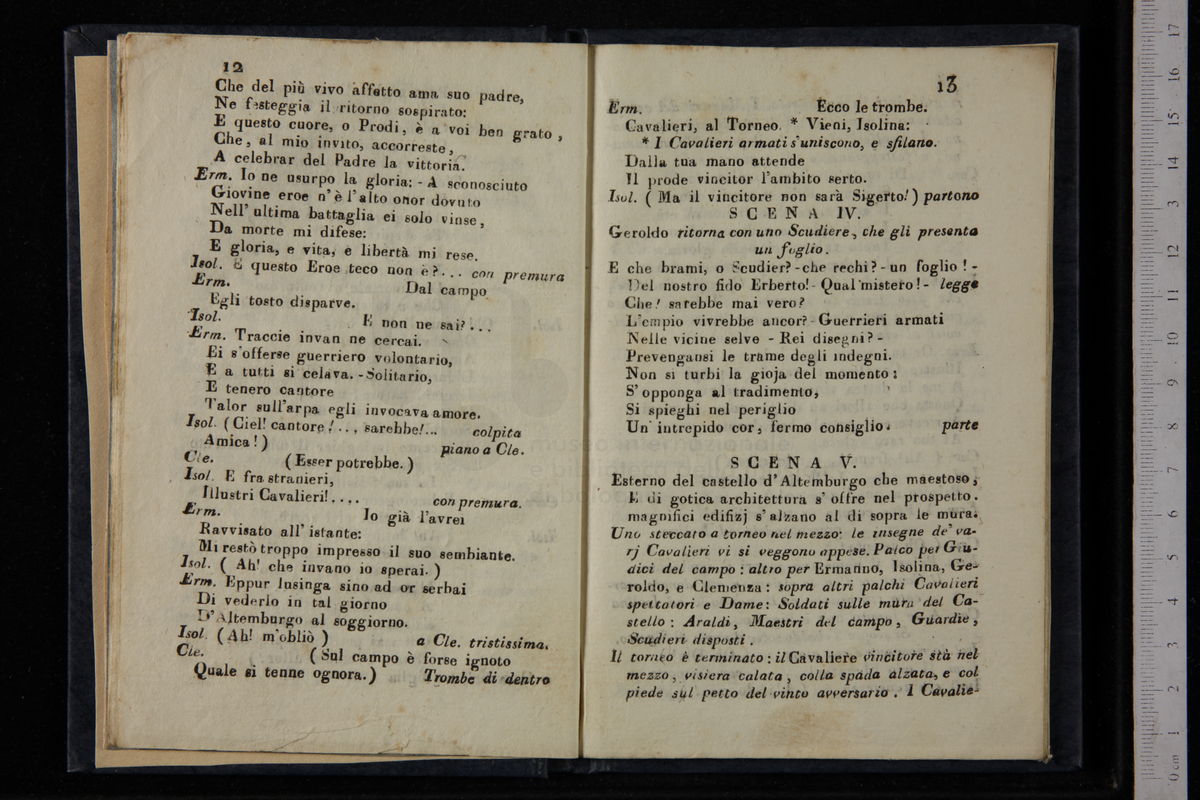 12
Che del più vivo affetto ama suo padre,
Ne festeggia il ritorno sospirato:
E questo cuore, o Prodi, è a voi ben grato,
Che, al mio invito, accorreste,
A celebrar del Padre la vittoria.
Erm. Io ne usurpo la gloria: - A sconosciuto
Giovine eroe n'è l'alto onor dovuto
Nell' ultima battaglia ei solo vinse,
Da morte mi difese:
E gloria, e vita, e libertà mi rese.
Isol. E questo Eroe teco non è?... con premura
Erm. Dal campo
Egli tosto disparve.
Isol. E non ne sai?...
Erm. Traccie invan ne cercai.
Ei s'offerse guerriero volontario,
E a tutti si celava. - Solitario,
E tenero cantore
Talor sull'arpa egli invocava amore.
Isol. (Ciel! cantore!... sarebbe!... colpita
Amica!) piano a Cle.
Cle. (Esser potrebbe.)
Isol. E fra stranieri,
Illustri Cavalieri!.... con premura.
Erm. Io già l'avrei
Ravvisato all' istante:
Mi restò troppo impresso il suo sembiante.
Isol. (Ah! che invano io sperai.)
Erm. Eppur lusinga sino ad or serbai
Di vederlo in tal giorno
D'Altemburgo al soggiorno.
Isol. (Ah! m'obliò) a Cle. tristissima.
Cle. (Sul campo è forse ignoto
Quale si tenne ognora.) Trombe di dentro
13
Erm. Ecco le trombe.
Cavalieri, al Torneo. * Vieni, Isolina:
* I Cavalieri armati s'uniscono, e sfilano.
Dalla tua mano attende
Il prode vincitor l'ambito serto.
Isol. (Ma il vincitore non sarà Sigerto!) partono
SCENA IV.
Geroldo ritorna con uno Scudiere, che gli presenta
un foglio.
E che brami, o Scudier? - che rechi? - un foglio! -
Del nostro fido Erberto! - Qual mistero! - legge
Che! sarebbe mai vero?
L'empio vivrebbe ancor? - Guerrieri armati
Nelle vicine selve - Rei disegni? -
Prevengansi le trame degli indegni.
Non si turbi la gioja del momento:
S' opponga al tradimento,
Si spieghi nel periglio
Un' intrepido cor, fermo consiglio. parte
SCENA V.
Esterno del castello d'Altemburgo che maestoso,
E di gotica architettura s' offre nel prospetto.
magnifici edifizj s'alzano al di sopra le mura.
Uno steccato a torneo nel mezzo: le insegne de' va-
rj Cavalieri vi si veggono appese. Palco pei Giu-
dici del campo: altro per Ermanno, Isolina, Ge-
roldo, e Clemenza: sopra altri palchi Cavalieri
spettatori e Dame: Soldati sulle mura del Ca-
stello: Araldi, Maestri del campo, Guardie,
Scudieri disposti.
Il torneo è terminato: il Cavaliere vincitore stà nel
mezzo, visiera calata, colla spada alzata, e col
piede sul petto del vinto avversario. I Cavalie-